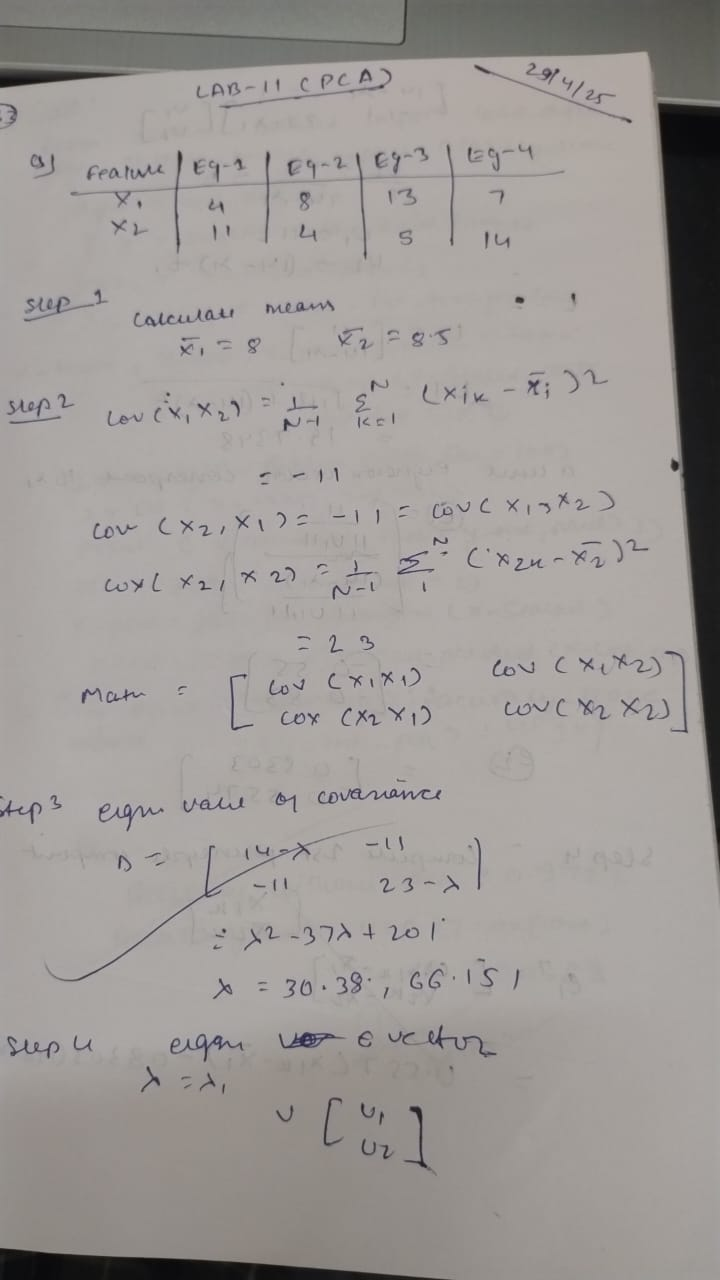 LAB-11 (PCA)
29/4/25
Q)
Feature | Eg-1 | Eg-2 | Eg-3 | Eg-4
X1 4 8 13 7
X2 11 4 5 14
Step 1 Calculate means
x̄1 = 8 x̄2 = 8.5
Step 2 Cov(x1 x2) = 1/N-1 Σ N k=1 (xik - x̄i)2
= -11
Cov (x2, x1) = -11 = Cov(x1, x2)
Cox(x2, x2) = 1/N-1 Σ N 1 (x2k - x̄2)2
= 23
Matr = [ Cov (x1x1) Cov (x1x2)
Cox (x2 x1) Cov (x2 x2) ]
Step 3 eigen value of covariance
[ 14-λ -11
-11 23-λ ]
= λ2 - 37λ + 201
λ = 30.38, 66.151
Step 4 eigen e vector
λ = λ1
U [ U1
U2 ]